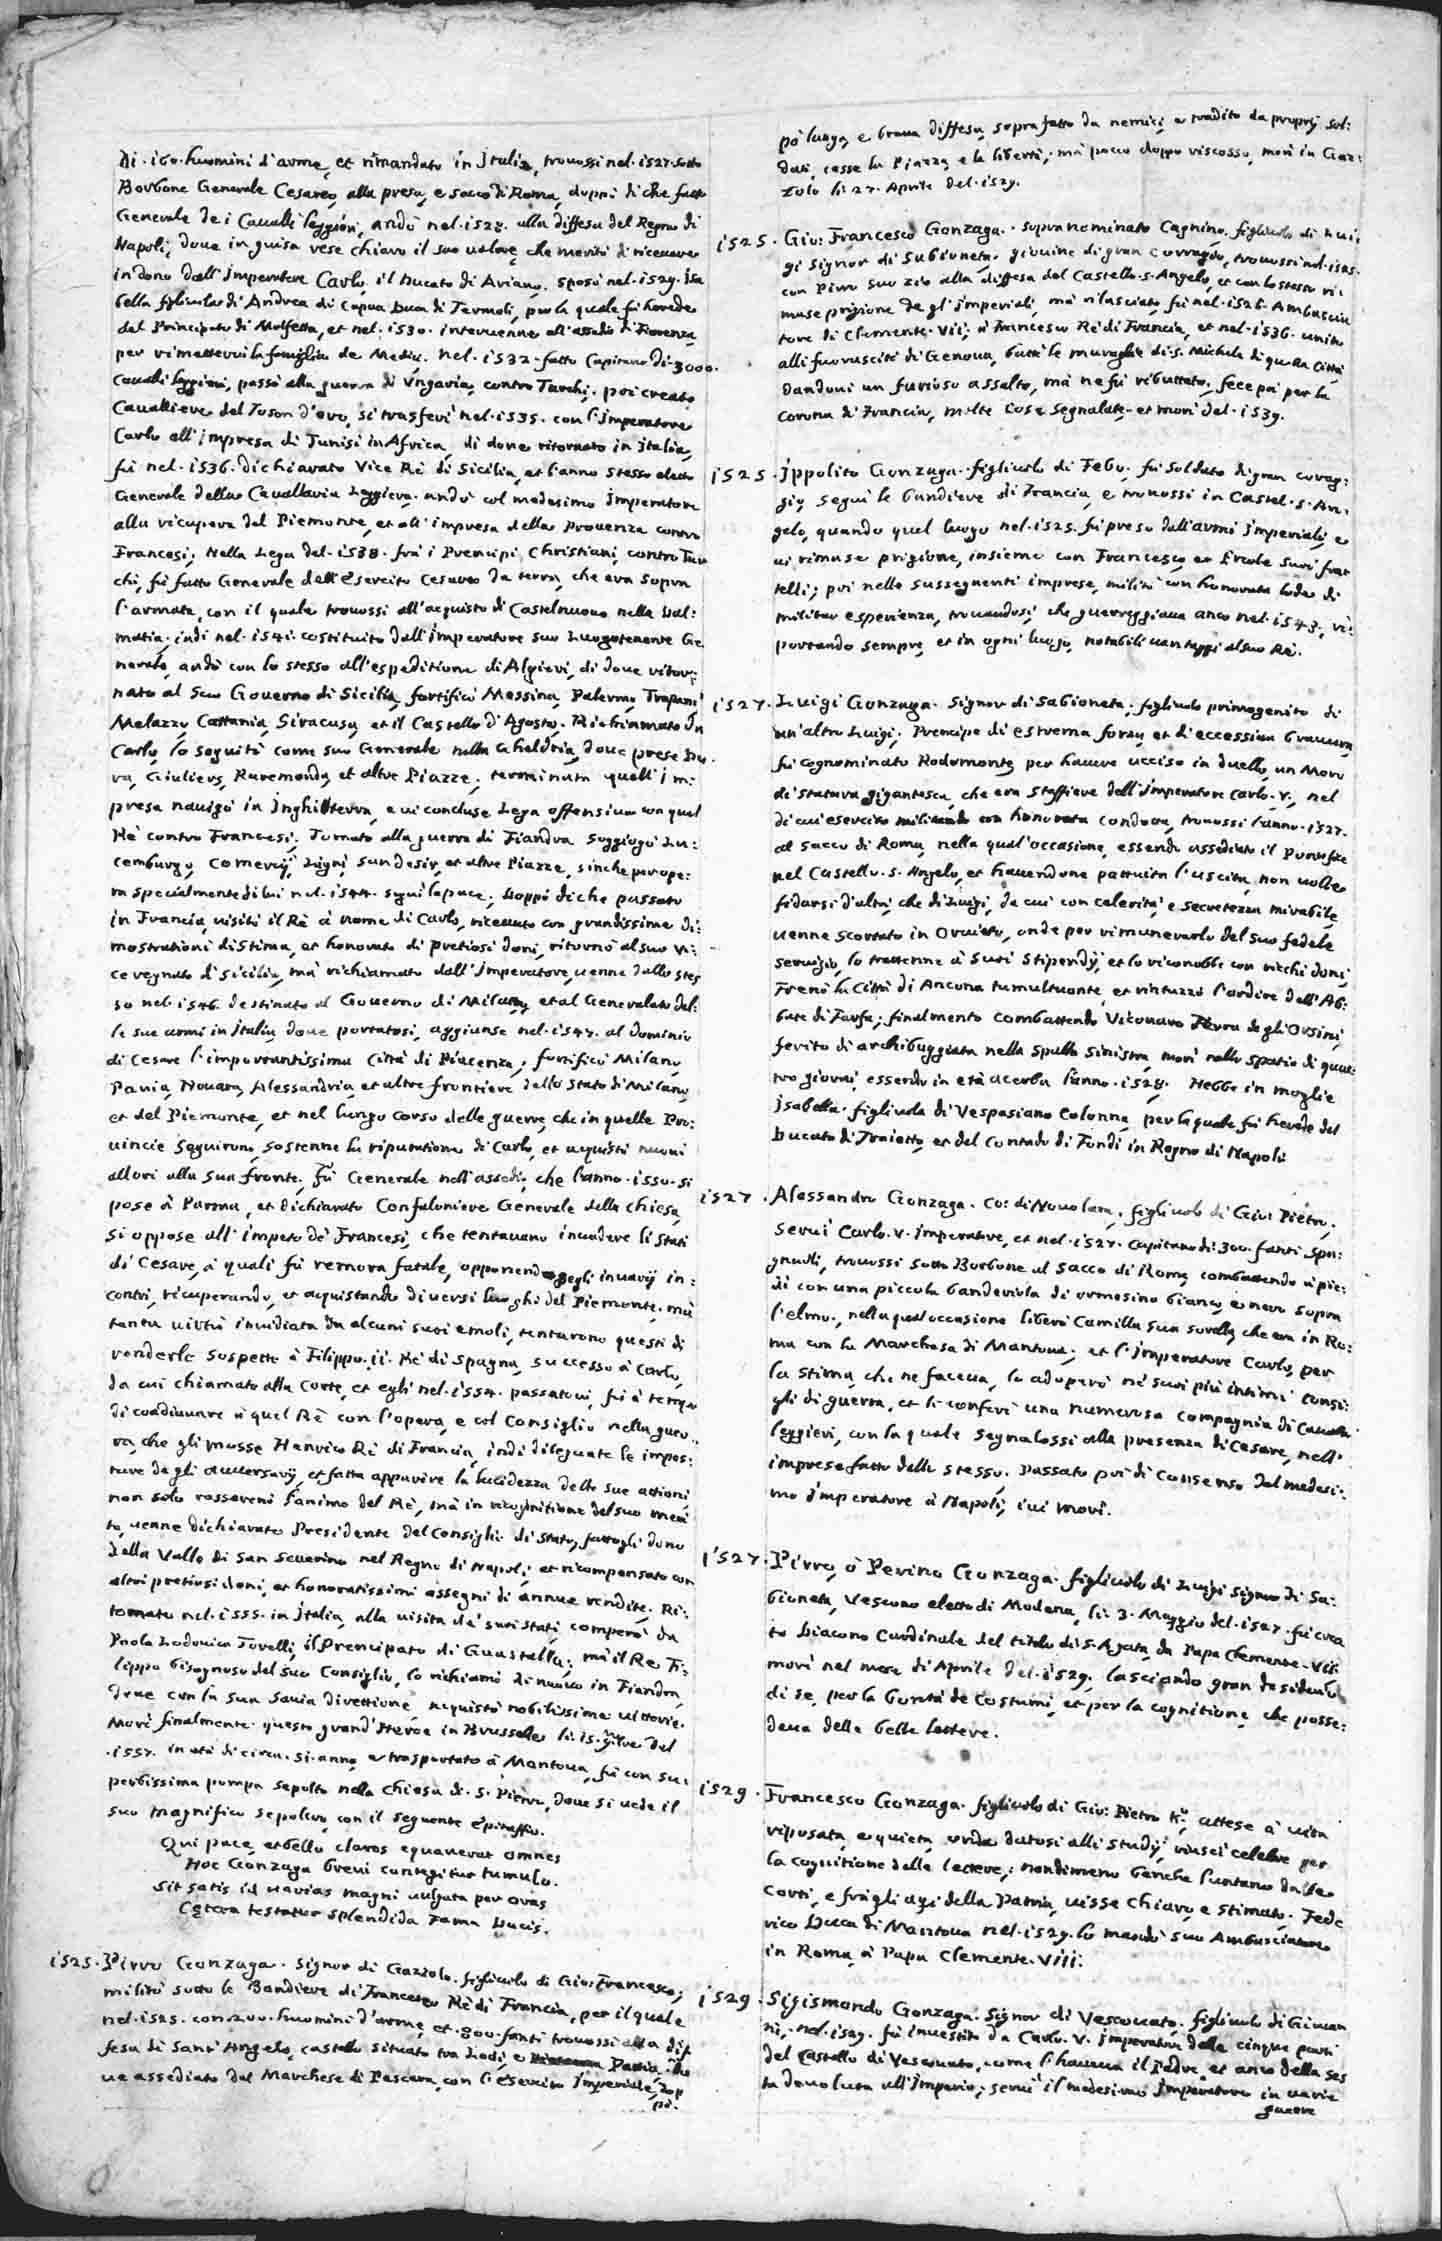 di .160. huomini d'arme, et rimandato in Italia, trouossi nel .1527. sotto
Borbone Generale Cesareo, alla presa, e sacco di Roma, doppò di che fatto
Generale de i Caualli leggieri, andò nel .1528. alla diffesa del Regno di
Napoli; doue in guisa rese chiaro il suo ualore, che meritò di riceuere
in dono dall'Imperatore Carlo il Ducato di Ariano. sposò nel .1529. Isa
bella figliuola di Andrea di Capua Duca di Termoli, per la quale fù herede
del Principato di Molfetta, et nel .1530. interuenne all'assedio di Fiorenza
per rimetterui la famiglia de Medici. nel .1532. fatto Capitano di .3000.
Caualli leggieri, passò alla guerra di Vngaria, contro Turchi. poi creato
Caualliere del Toson d'oro, si trasferì nel .1535. con l'Imperatore
Carlo all'impresa di Tunisi in Africa, di doue ritornato in Italia,
fù nel .1536. dichiarato Vice Rè di Sicilia, et l'anno stesso eletto
Generale della Cauallaria Leggiera. andò col medesimo Imperatore
alla ricupera del Piemonte, et all'impresa della Prouenza contro
Francesi; Nella Lega del .1538. frà i Prencipi Christiani, contro Tur
chi, fù fatto Generale dell'Esercito Cesareo da terra, che era sopra
l'armata, con il quale trouossi all'acquisto di Castelnuouo nella Dal:
matia. indi nel .1541. costituito dall'Imperatore suo Luogotenente Ge
nerale, andò con lo stesso all'espeditione di Algieri, di doue ritor:
nato al suo Gouerno di Sicilia, fortificò Messina, Palermo, Trapani,
Melazzo, Cattania, Siracusa, et il Castello d'Agosta. Richiamato da
Carlo, lo seguitò come suo Generale nella Gheldria, doue prese Du
ra, Giuliers, Ruremonda, et altre Piazze. terminata quell'Im:
presa nauigò in Inghilterra, e ui concluse Lega offensiua con quel
Rè contro Francesi. Tornato alla guerra di Fiandra soggiogò Lu:
cemburgo, Comercij, Ligni, sandesir, et altre Piazze, sinche per ope:
ra specialmente di lui nel .1544. seguì la pace; doppò di che passato
in Francia, uisitò il Rè à nome di Carlo, riceuuto con grandissime di:
mostrationi di stima, et honorato di pretiosi doni, ritornò al suo Vi:
ce regnato di Sicilia, mà richiamato dall'Imperatore, uenne dallo stes
so nel .1546. destinato al Gouerno di Milano, et al Generalato del:
le sue armi in Italia, doue portatosi, aggiunse nel .1547. al dominio
di Cesare l'importantissima Città di Piacenza; fortificò Milano,
Pauia, Nouara, Alessandria, et altre frontiere dello stato di Milano,
et del Piemonte, et nel lungo corso delle guerre, che in quelle Pro:
uincie seguirono, sostenne la riputatione di Carlo, et acquistò nuoui
allori alla sua fronte. Fù Generale nell'assedio, che l'anno .1550. si
pose à Parma, et dichiarato Confaloniere Generale della Chiesa,
si oppose all'impeto de' Francesi, che tentauano inuadere li stati
di Cesare, à quali fù remora fatale, opponendosegli in uarij in:
contri, ricuperando, et acquistando diuersi luoghi del Piemonte. mà
tanta uirtù inuidiata da alcuni suoi emoli, tentarono questi di
renderlo sospetto à Filippo .II. Rè di Spagna, successo à Carlo,
da cui chiamato alla Corte, et egli nel .1554. passatoui, fù à tempo
di coadiuuare à quel Rè con l'opera, e col Consiglio nella guer
ra, che gli mosse Henrico Rè di Francia, indi dileguate le impos:
ture de gli auuersarij, et fatta apparire la lucidezza delle sue attioni,
non solo rasserenò l'animo del Rè, mà in ricognitione del suo meri
to, uenne dichiarato Presidente del Consiglio di stato, fattogli dono
della Valle di San Seuerino nel Regno di Napoli; et ricompensato con
altri pretiosi doni, et honoratissimi assegni di annue rendite. Ri:
tornato nel .1555. in Italia, alla uisita de' suoi stati, comperò da
Paola Lodouica Torelli, il Prencipato di Guastalla; mà il Re Fi:
lippo bisognoso del suo Consiglio, lo richiamò di nuouo in Fiandra,
doue con la sua sauia direttione, acquistò nobilissime uittorie.
Morì finalmente questo grand'Heroe in Brusselles li .15. 9bre del
.1557. in età di circa .51. anno, e trasportato à Mantoua, fù con su:
perbissima pompa sepolto nella Chiesa di .S. Pietro, doue si uede il
suo magnifico sepolcro, con il seguente epitaffio.
Qui pace, et bello claros equauerat omnes
Hoc Gonzaga breui contegitur tumulo.
Sit satis id uarias magni uulgata per oras
Cętera testatur splendida Fama Ducis.
1525. Pirro Gonzaga. Signor di Gazzolo. figliuolo di Gio: Francesco;
militò sotto le Bandiere di Francesco Rè di Francia, per il quale
nel .1525. con .200. huomini d'arme, et .800. fanti trouossi alla dif
fesa di Sant'Angelo, castello situato tra Lodi, e Pauia. Do
ue assediato dal Marchese di Pescara, con l'esercito Imperiale, dop
pò.
pò lunga, e braua diffesa, soprafatto da nemici, e tradito da proprij sol:
dati, cesse la Piazza, e la libertà; mà pocco doppo riscosso, morì in Gaz:
zolo li 27. Aprile del .1529.
1525. Gio: Francesco Gonzaga. sopranominato Cagnino. figliuolo di Lui:
gi Signor di Sabioneta. giouine di gran corraggio, trouossi nel .1525.
con Pirro suo zio alla diffesa del Castello .S. Angelo, et con lo stesso ri:
mase prigione de gl'imperiali, mà rilasciato, fù nel .1526. Ambascia
tore di Clemente .VII. à Francesco Rè di Francia, et nel .1536. unito
alli fuorusciti di Genoua, batté le muraglie di .S. Michele di quella Città
dandoui un furioso assalto, mà ne fù ributtato. fece poi per la
corona di Francia, molte cose segnalate, et morì del .1539.
1525. Ippolito Gonzaga. figliuolo di Febo. fù soldato di gran corag:
gio, seguì le bandiere di Francia, e trouossi in Castel .S. An:
gelo, quando quel luogo nel .1525. fù preso dall'armi Imperiali, e
ui rimase prigione, insieme con Francesco, et Ercole suoi fra
telli; poi nelle susseguenti imprese, militò con honorata lode di
militar esperienza, trouandosi, che guerreggiaua anco nel .1543. ri:
portando sempre, et in ogni luogo, notabili uantaggi al suo Rè.
1527. Luigi Gonzaga. Signor di Sabioneta. figliuolo primogenito di
un'altro Luigi. Prencipe di estrema forza, et d'eccessiua brauura,
fù cognominato Rodomonte, per hauere ucciso in duello, un Moro
di statura gigantesca, che era staffiere dell'Imperatore Carlo .V., nel
di cui esercito militando con honorata condotta, trouossi l'anno .1527.
al sacco di Roma, nella qual'occasione, essendo assediato il Pontefice
nel Castello .S. Angelo, et hauendone pattuita l'uscita, non uolle
fidarsi d'altri, che di Luigi, da cui con celerità, e secretezza mirabile,
uenne scortato in Oruieto, onde per rimunerarlo del suo fedele
seruigio, lo trattenne à suoi stipendij, et lo riconobbe con ricchi doni,
Frenò la Città di Ancona tumultuante, et rintuzzò l'ardire dell'Ab:
bate di Farfa; finalmente combattendo Vicouaro Terra de gli Orsini,
ferito di archibuggiata nella spalla sinistra, morì nello spatio di quat:
tro giorni, essendo in età acerba l'anno .1528. Hebbe in moglie
Isabella figliuola di Vespasiano Colonna, per la quale fù herede del
Ducato di Traietto, et del Contado di Fondi in Regno di Napoli.
1527. Alessandro Gonzaga. Co: di Nouolara. figliuolo di Gio: Pietro.
seruì Carlo .V. imperatore, et nel .1527. Capitano di .300. fanti Spa:
gnuoli, trouossi sotto Borbone al sacco di Roma, combattendo à pie:
di con una piccola banderiola di ormesino bianco, e nero sopra
l'elmo., nella qual'occasione liberò Camilla sua sorella, che era in Ro:
ma con la Marchesa di Mantoua; et l'imperatore Carlo, per
la stima, che ne faceua, lo adoperò ne' suoi più intimi consi:
gli di guerra, et li conferì una numerosa compagnia di Caualli
leggieri, con la quale segnalossi alla presenza di Cesare, nell'
imprese fatte dallo stesso. Passato poi di consenso del medesi:
mo Imperatore à Napoli, iui morì.
1527. Pirro, ò Perino Gonzaga. figliuolo di Luigi Signor di Sa:
bioneta, Vescouo eletto di Modena, li: 3. Maggio del .1527. fù crea
to Diacono Cardinale del titolo di S. Agata, da Papa Clemente .VII.
morì nel mese di Aprile del .1529. lasciando gran desiderio
di se, per la bontà de costumi, et per la cognitione, che posse:
deua delle belle lettere.
1529. Francesco Gonzaga. figliuolo di Gio: Pietro attese à uita
riposata, e quieta, onde datosi alli studij, riuscì celebre per
la cognitione delle lettere; nondimeno benche lontano dalle
Corti, e frà gli agi della Patria, uisse chiaro, e stimato. Fede
rico Duca di Mantoua nel .1529. lo mandò suo Ambasciatore
in Roma, à Papa Clemente .VIII.
1529. Sigismondo Gonzaga. Signor di Vescouato. figliuolo di Giouan
ni. nel .1529. fù inuestito da Carlo .V. Imperatore delle cinque parti
del Castello di Vescouato, come l'haueua il Padre, et anco della ses
ta deuoluta all'Imperio; seruì il medesimo Imperatore in uarie
guerre